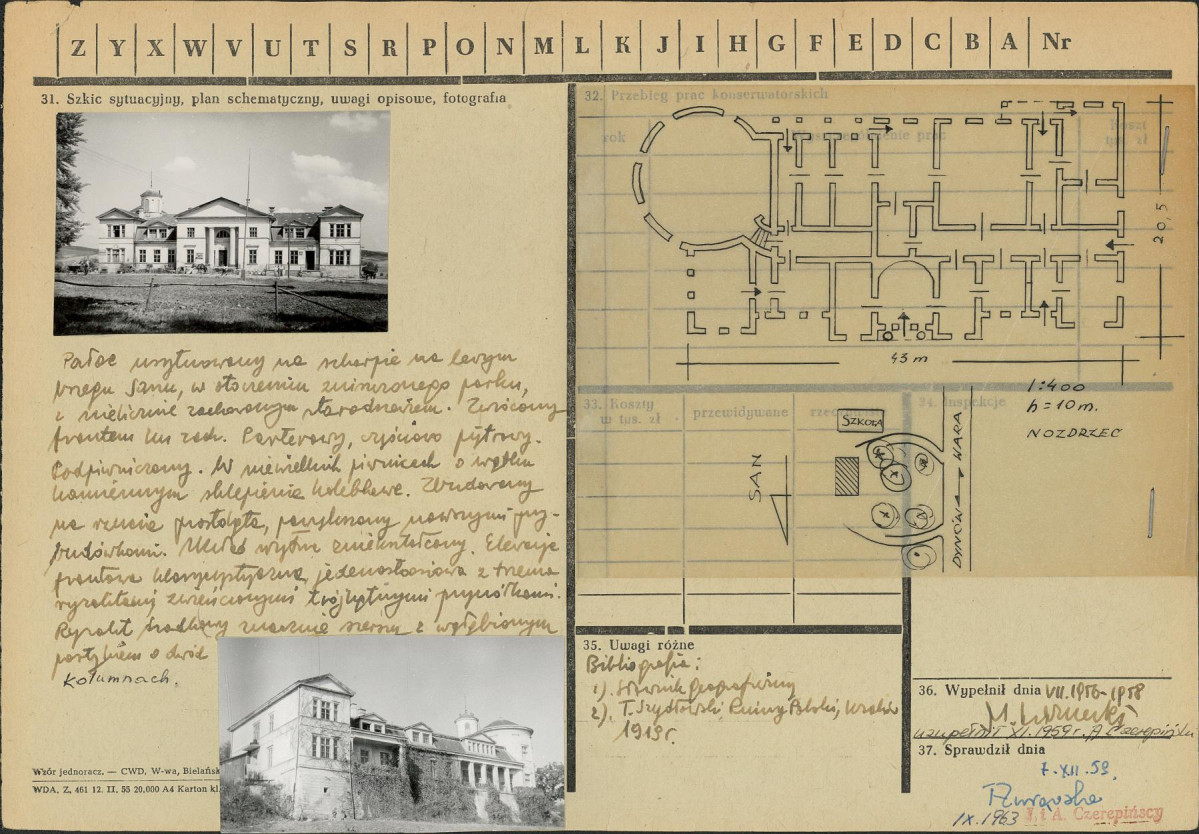 Z Y X W V U T S R P O N M L K J I H G F E D C B A Nr
31. Szkic sytuacyjny, plan schematyczny, uwagi opisowe, fotografia
Pałac usytuowany na skarpie na lewym
brzegu Sanu, w otoczeniu zniszczonego parku,
z nielicznie zachowanym starodrzewiem. Zwrócony
frontem ku zach. Parterowy, częściowo piętrowy.
Podpiwniczony. W niewielkich piwnicach o wątku
kamiennym sklepienia kolebkowe. Zbudowany
na rzucie prostokąta, powiększony nowszymi przy-
budówkami. Układ wnętrz zniekształcony. Elewacja
frontowa jednoosiowa z trzema
ryzalitami zwieńczonymi trójkątnymi przyczółkami.
Ryzalit środkowy znacznie szerszy z wgłębionym
portykiem o dwóch
kolumnach.
Wzór jednoracz. — CWD, W-wa, Bielańsk
WDA. Z. 461 12. II. 55 20.000 A4 Karton kl.
32. Przebieg prac konserwatorskich
rok
prac
Koszt
tys. zł
20,5
43 m
1:400
h = 10 m.
NOZDRZEC
33. Koszty
w tys. zł
przewidywane
34. Inspekcje
SZKOŁA
SAN
DYNÓW
35. Uwagi różne
Bibliografia:
1). Słownik Geograficzny
2). T. Szydłowski Ruiny Polski, Kraków
1919 r.
36. Wypełnił dnia VII. 1956-1958
uzupełnił XI. 1959 r. A Czerepiński
37. Sprawdził dnia
7. XII. 59.
IX. 1963 I. i A. Czerepińscy